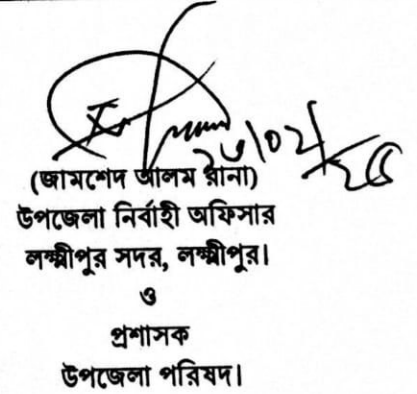 (জামশেদ আলম রানা)
উপজেলা নির্বাহী অফিসার
লক্ষ্মীপুর সদর, লক্ষ্মীপুর।
ও
প্রশাসক
উপজেলা পরিষদ।